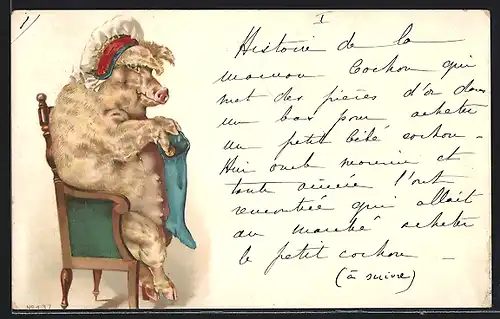 1)
I
Histoire de la
maman Cochon qui
met des pièces d'or dans
un bas pour acheter
un petit bébé cochon -
et
toute l'ont
rencontrée qui allait
au marché acheter
le petit cochon -
(à suivre)